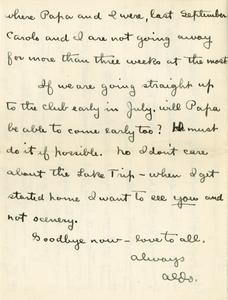 where Papa and I were, last September
Carols and I are not going away
for more than three weeks at the most
If we are going straight up
to the club early in July, will Papa
be able to come early too? He must
do it if possible. No I don't care
about the Lake Trip – when I get
started home I want to see you and
not scenery.
Goodbye now – love to all.
always